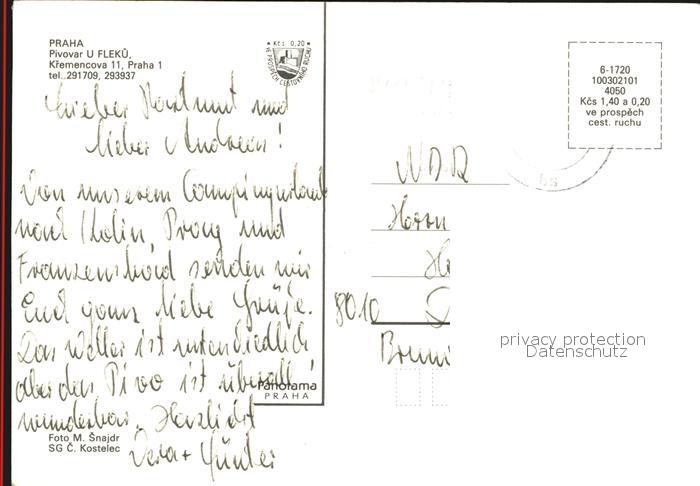 PRAHA
Pivovar U FLEKŮ,
Křemencova 11, Praha 1
tel. 291709, 293937
Kčs 0,20
VE PROSPĚCH CESTOVNÍHO RUCHU
6-1720
100302101
4050
Kčs 1,40 a 0,20
ve prospěch
cest. ruchu
Lieber Hartmut und
lieber Andreas!
Von unserem Campingurlaub
nach Kolin, Prag und
Franzensbad senden wir
Euch ganz liebe Grüße.
Das Wetter ist unterschiedlich
aber das Pivo ist überall
wunderbar. Herzlichst
Vera + Günter
DDR
Herrn
8010
privacy protection
Datenschutz
Panorama
PRAHA
Foto M. Šnajdr
SG Č. Kostelec